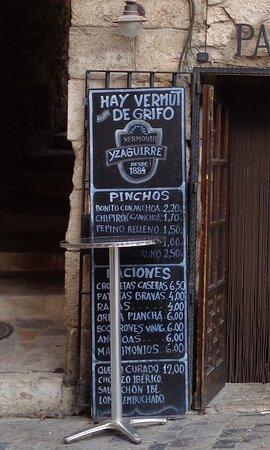 PA
HAY VERMUT
DE GRIFO
VERMOUTH
YZAGUIRRE
DESDE
1884
PINCHOS
BONITO CON ANCHOA. 2,20
CHIPIRÓN C/ANCHOA. 1,70
PEPINO RELLENO. 1,50
1,00
MORUNO 2,50
RACIONES
CROQUETAS CASERAS 6,50
PATATAS BRAVAS. 4.00
RABAS. 4.00
OREJA PLANCHA. 6.00
BOQUERONES VINAG. 6.00
ANCHOAS 6.00
MATRIMONIOS 6.00
QUESO CURADO. 12,00
CHORIZO IBÉRICO.
SALCHICHÓN IBE.
LOMO EMBUCHADO.